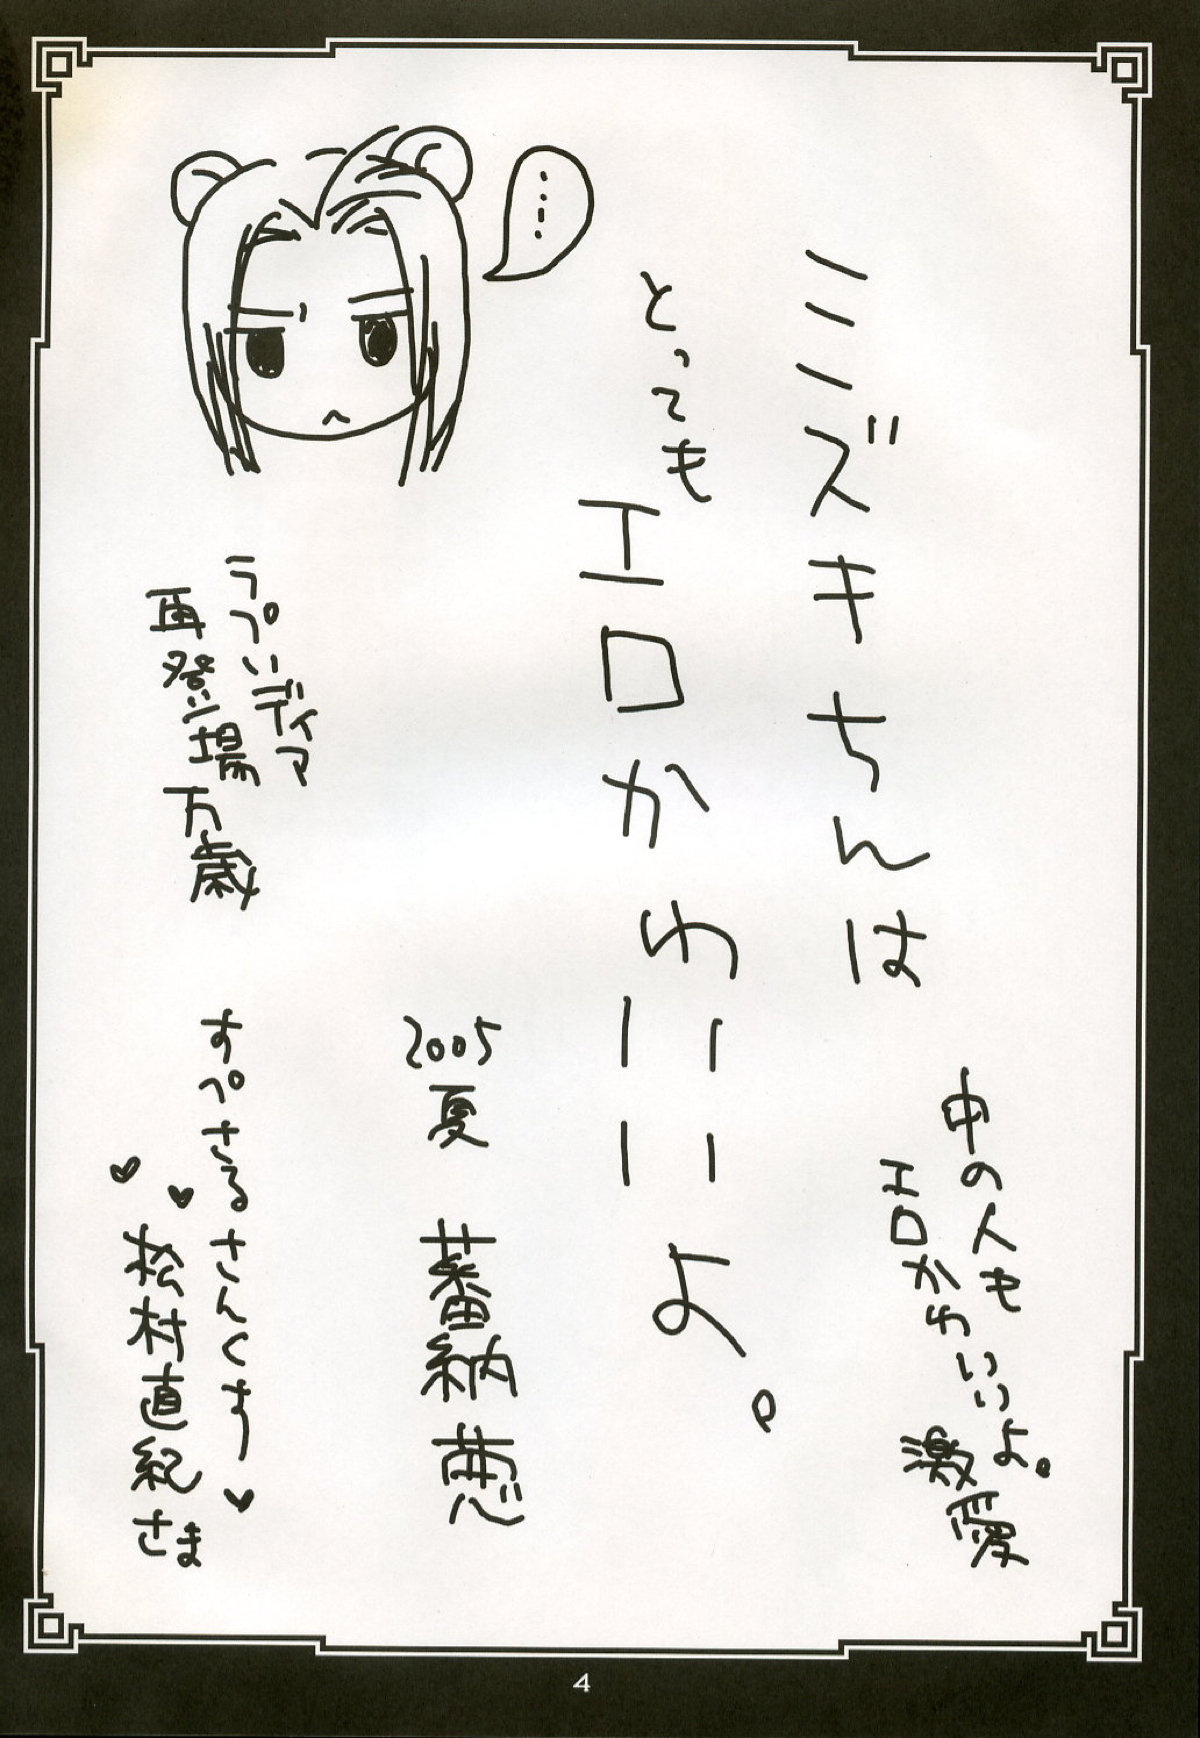 ミミズキちんは
とっても
エロかわ
いーいーよ。
中の人も
エロかわいいよ。
激愛
2005 夏 蕃納葱
……
らぷいディア
再登場万歳
すぺさるさんくす♥
♥♥松村直紀さま
4